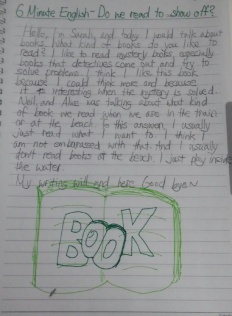 6 Minute English - Do we read to show off?
Hello, I'm Sarah, and today I would talk about
books. What kind of books do you like to
read? I like to read mystery books, especially
books that detectives come out and try to
solve problems. I think I like this book
because I could think more and because
it is interesting when the mystery is solved.
Neil, and Alice was talking about what kind
of book we read when we are in the train
or at the beach. In this answer, I usually
just read what I want to. I think I
am not embarrassed with that. And I usually
don't read books at the beach. I just play inside
the water.
My writing will end here. Good bye~
BOOK